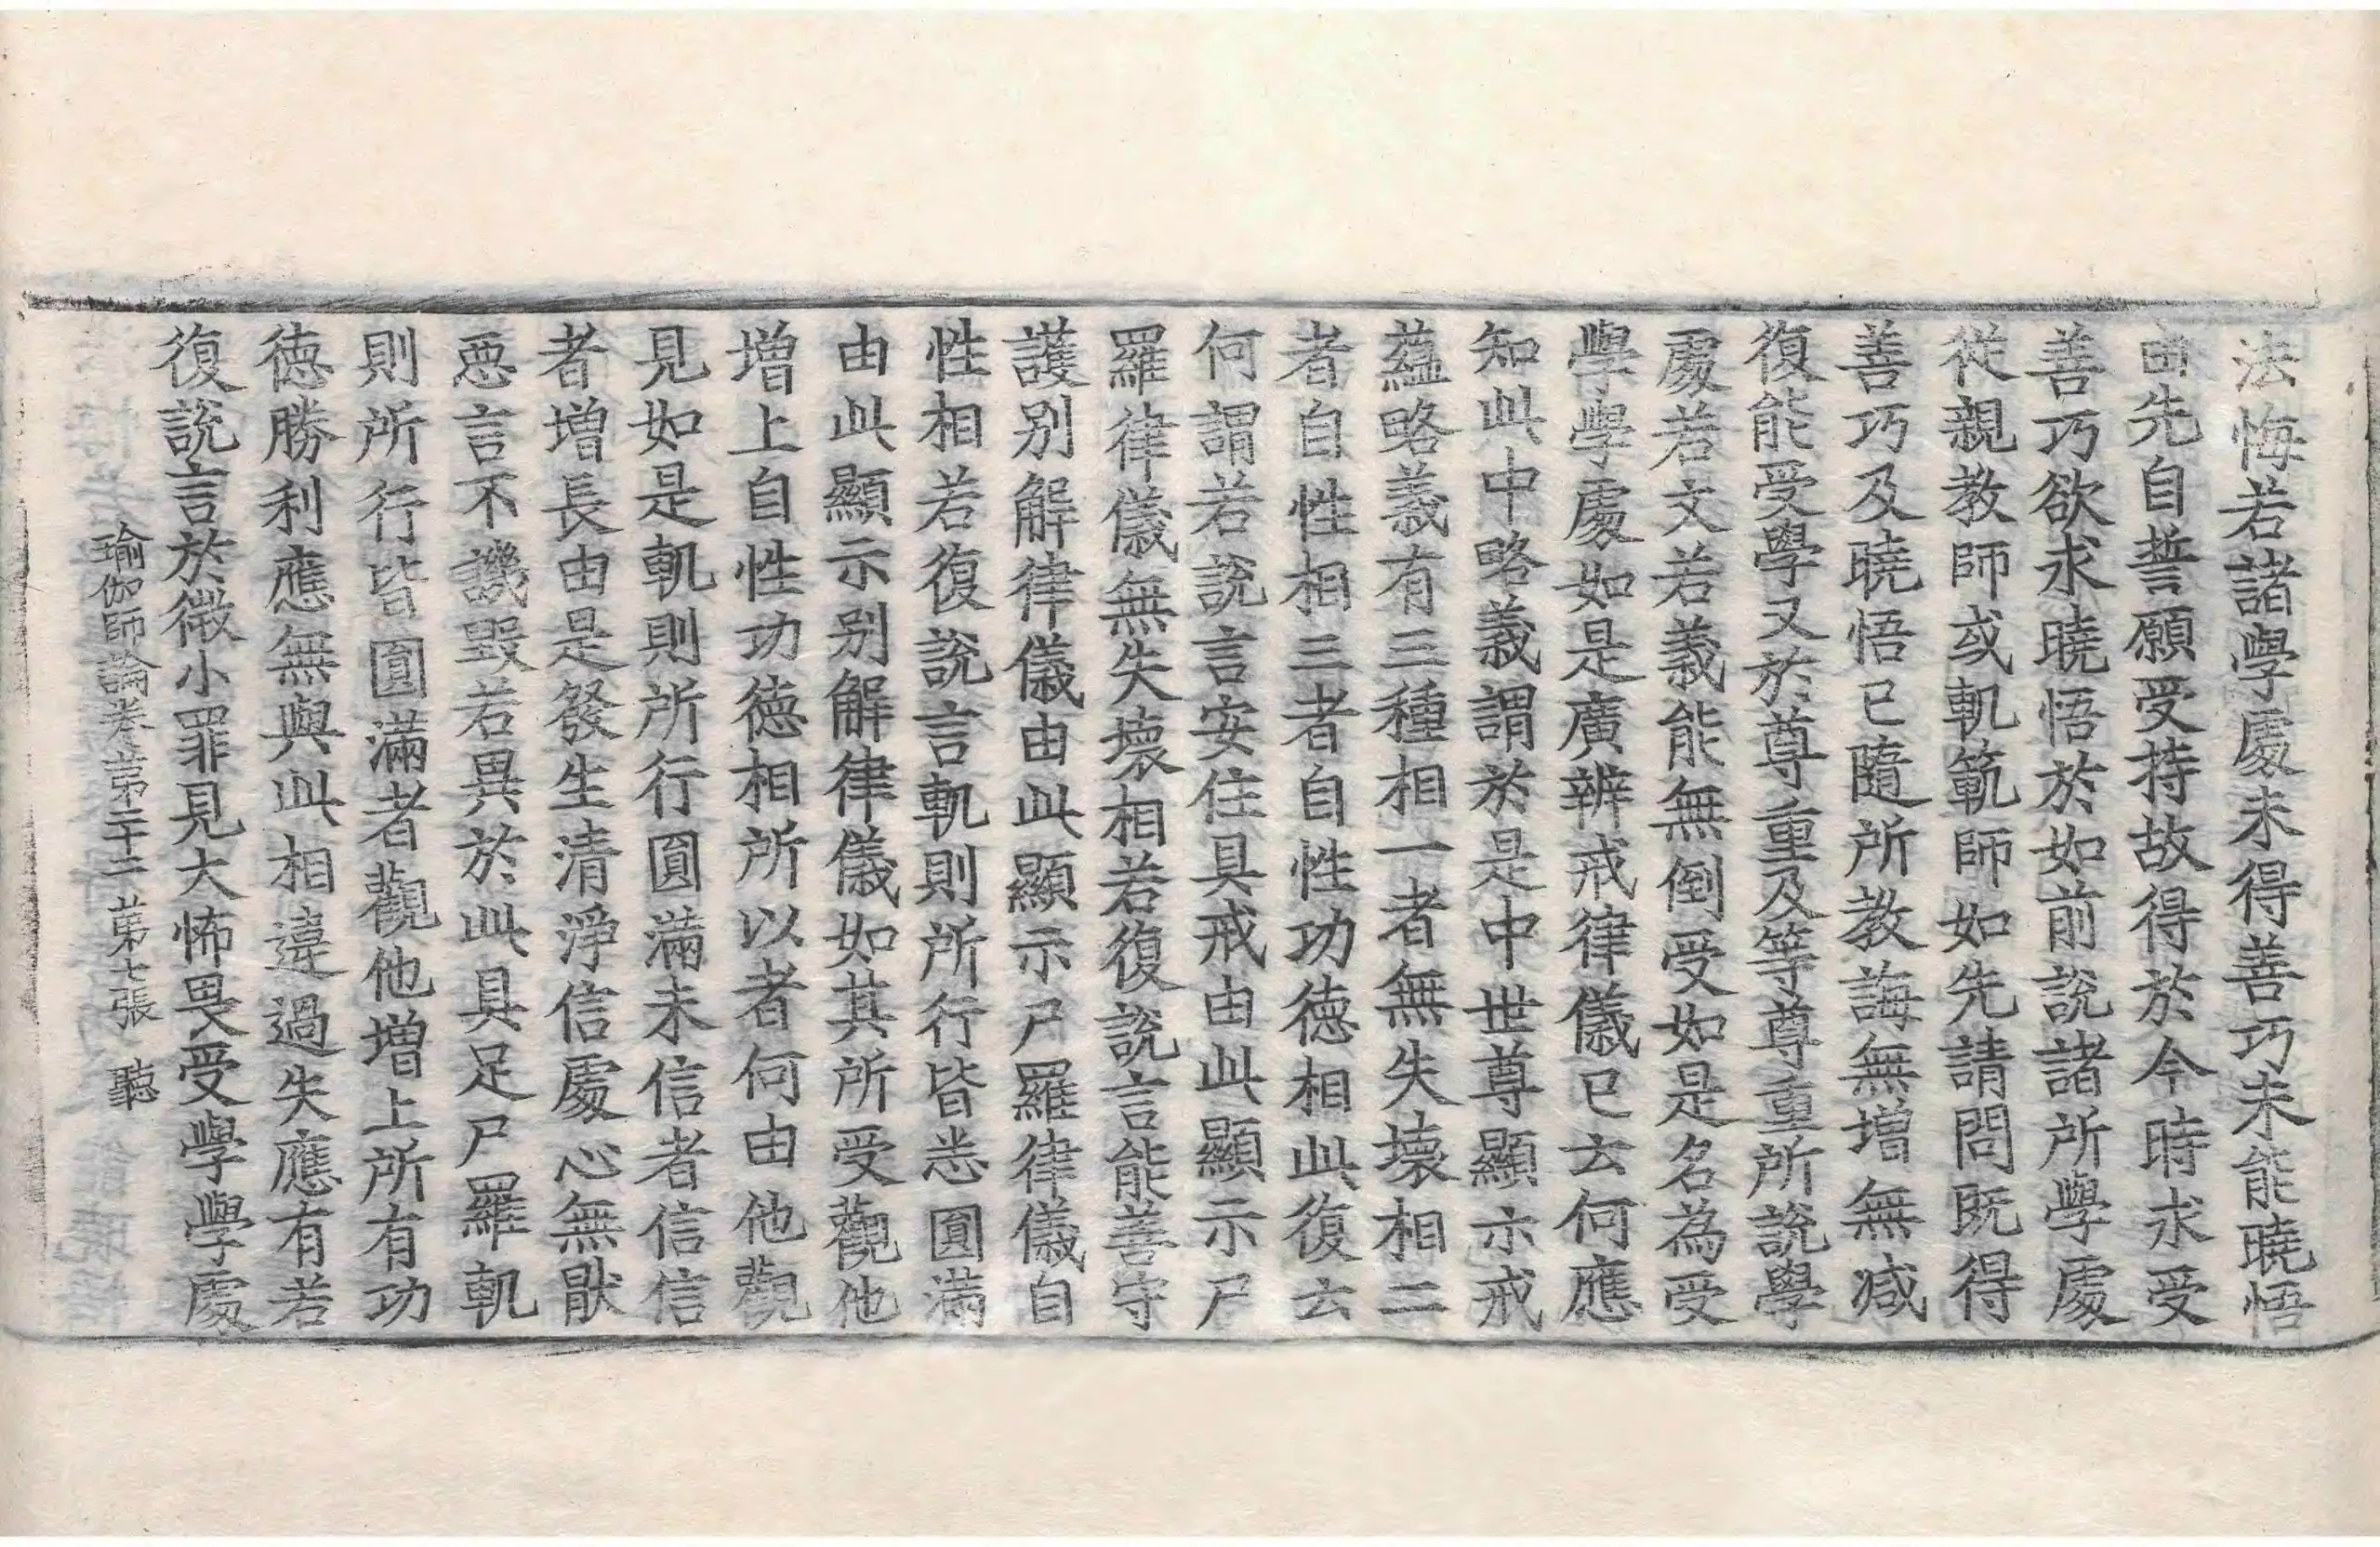 法悔若諸學處未得善巧未能曉悟
由先自誓願受持故得於今時求受
善巧欲求曉悟於如前說諸所學處
從親教師或軌範師如先請問旣得
善巧及曉悟已隨所教誨無增無減
復能受學又於尊重及等尊重所說學
處若文若義能無倒受如是名為受
學學處如是廣辨戒律儀已云何應
知此中略義謂於是中世尊顯示戒
蘊略義有三種相一者無失壞相二
者自性相三者自性功德相此復云
何謂若說言安住具戒由此顯示尸
羅律儀無失壞相若復說言能善守
護別解律儀由此顯示尸羅律儀自
性相若復說言軌則所行皆悉圓滿
由此顯示別解律儀如其所受觀他
增上自性功德相所以者何由他觀
見如是軌則所行圓滿未信者信信
者增長由是發生清淨信處心無猒
惡言不譏毀若異於此具足尸羅軌
則所行皆圓滿者觀他增上所有功
德勝利應無與此相違過失應有若
復說言於微小罪見大怖畏受學學處
瑜伽師論卷第二十二　第七張　聽